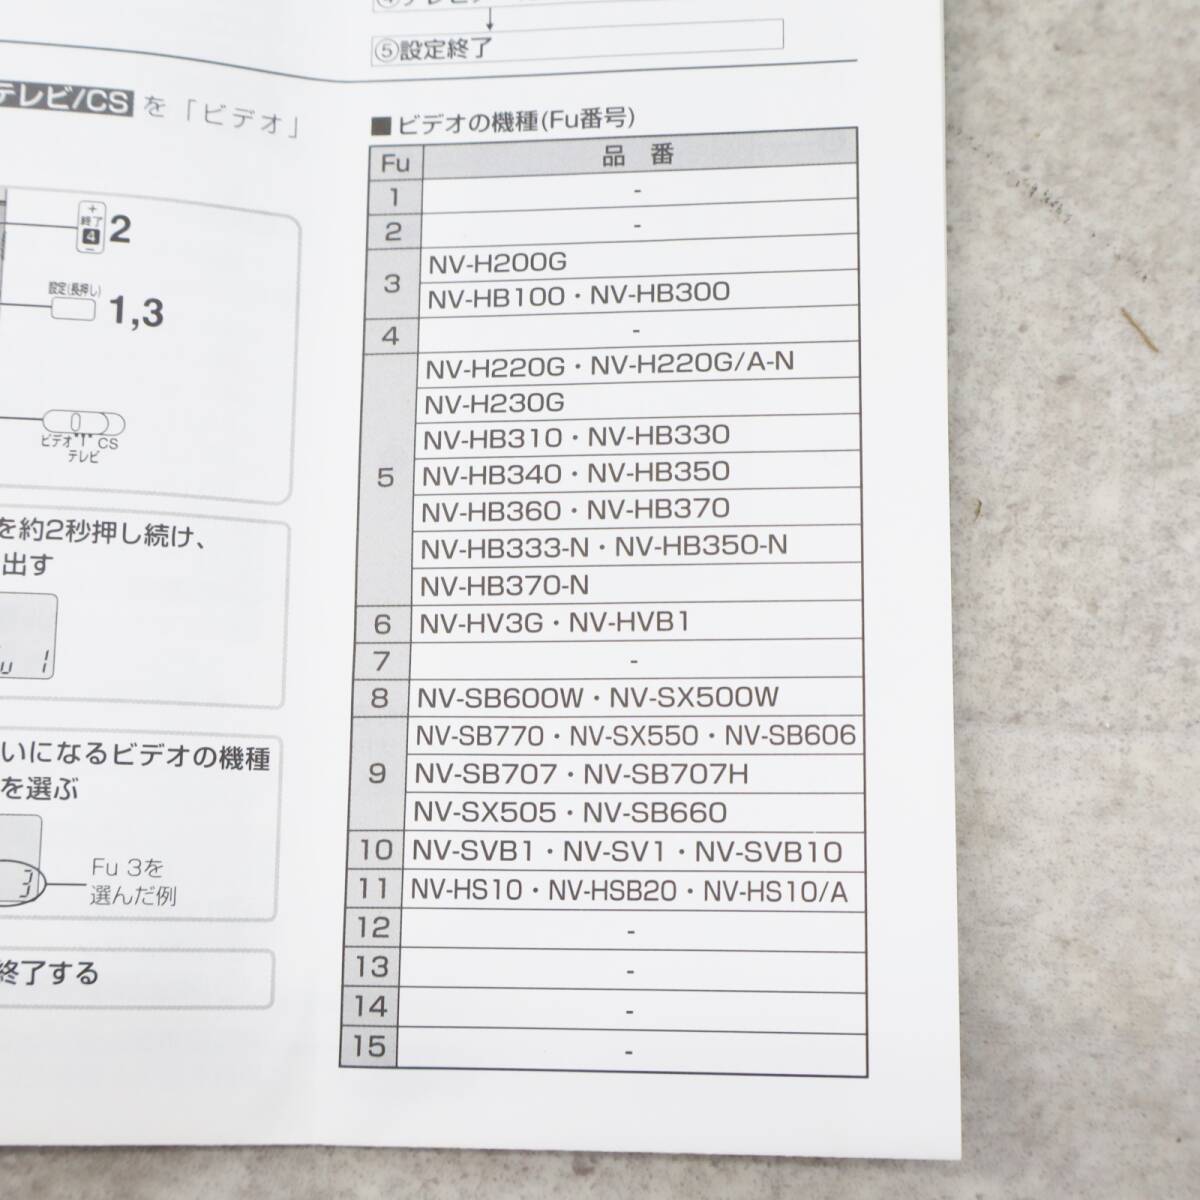 ⑤設定終了
テレビ/CS を「ビデオ」
+
終了
4
−
2
設定(長押し)
1,3
ビデオ CS
テレビ
を約2秒押し続け、
出す
1
いになるビデオの機種
を選ぶ
3
Fu 3を
選んだ例
終了する
■ビデオの機種(Fu番号)
Fu 品 番
1 -
2 -
3 NV-H200G
NV-HB100・NV-HB300
4 -
5 NV-H220G・NV-H220G/A-N
NV-H230G
NV-HB310・NV-HB330
NV-HB340・NV-HB350
NV-HB360・NV-HB370
NV-HB333-N・NV-HB350-N
NV-HB370-N
6 NV-HV3G・NV-HVB1
7 -
8 NV-SB600W・NV-SX500W
9 NV-SB770・NV-SX550・NV-SB606
NV-SB707・NV-SB707H
NV-SX505・NV-SB660
10 NV-SVB1・NV-SV1・NV-SVB10
11 NV-HS10・NV-HSB20・NV-HS10/A
12 -
13 -
14 -
15 -